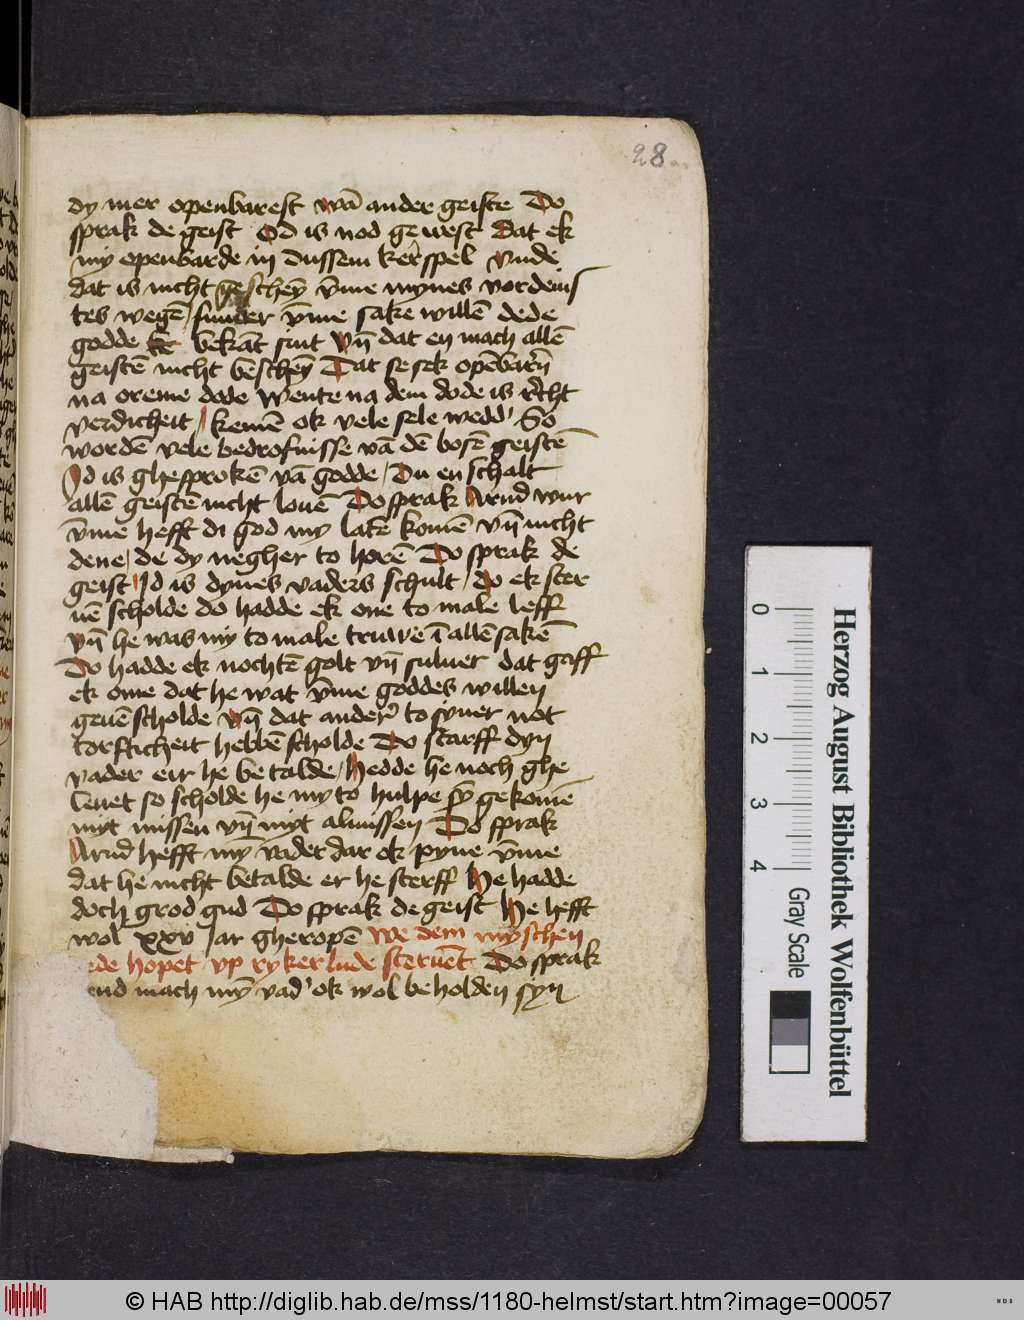 28
dy mer openbarest wā ander geiste Do
sprak de geist Od is nod gewest Dat ek
my openbarde in dussem kerspel Vnde
dat is nicht gescheẏ v̄me mynes vordeins
tes wegē / sunder v̄me sake willē dede
godde bekāt sint vn̄ dat en mach allē
geistē nicht bescheẏ Dat se sek opēbarn̄
na oreme dode Wente na dem dode is
verdicheit / kemē ok vele sele wedd' So
wordē vele bedrofnisse vā dē bosē geistē
Id is ghesprokē vā godde / Du en schalt
allē geistē nicht louē Do sprak Arnd wur
v̄me hefft di god my latē komē vn̄ nicht
dene / de dy negher to horē Do sprak de
geist Id is dynes vaders schult / do ek ster
uē scholde do hadde ek one to male leff
vn̄ he was my to male truwe ī allē sakē
Do hadde ek nochtē golt vn̄ suluer dat gaff
ek ome dat he wat v̄me goddes willen
geuē scholde vn̄ dat ander' to syner not
torfticheit hebbē scholde Do starff dyn
vader eir he betalde / Hedde he noch ghe
leuet so scholde he my to hulpe sȳ gekomē
myt missen vn̄ myt almissen Do sprak
Arnd hefft mȳ vader dar ok pyne v̄me
dat he nicht betalde er he sterff He hadde
doch grod gud Do sprak de geist He hefft
wol xxv Jar gheropē We dem mynschen
de hopet vp ryker lude steruēt Do sprak
mach mȳ vad' ok wol beholden syn
0 1 2 3 4
Gray Scale
Herzog August Bibliothek Wolfenbüttel
© HAB http://diglib.hab.de/mss/1180-helmst/start.htm?image=00057